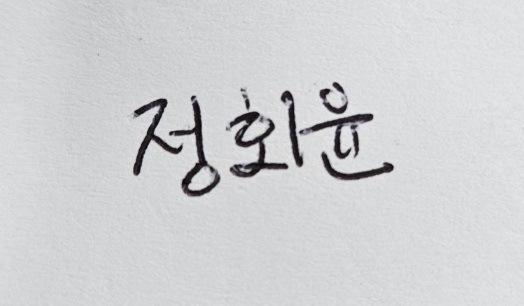 정회윤